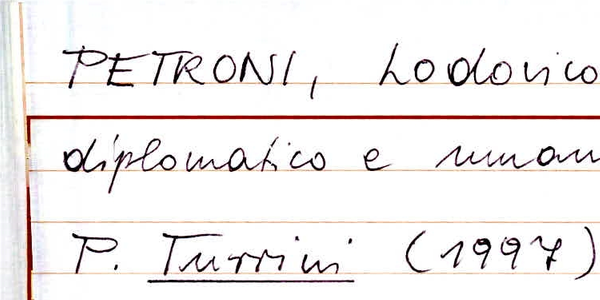 PETRONI, Lodovico
diplomatico e uman
P. Turrini (1997)